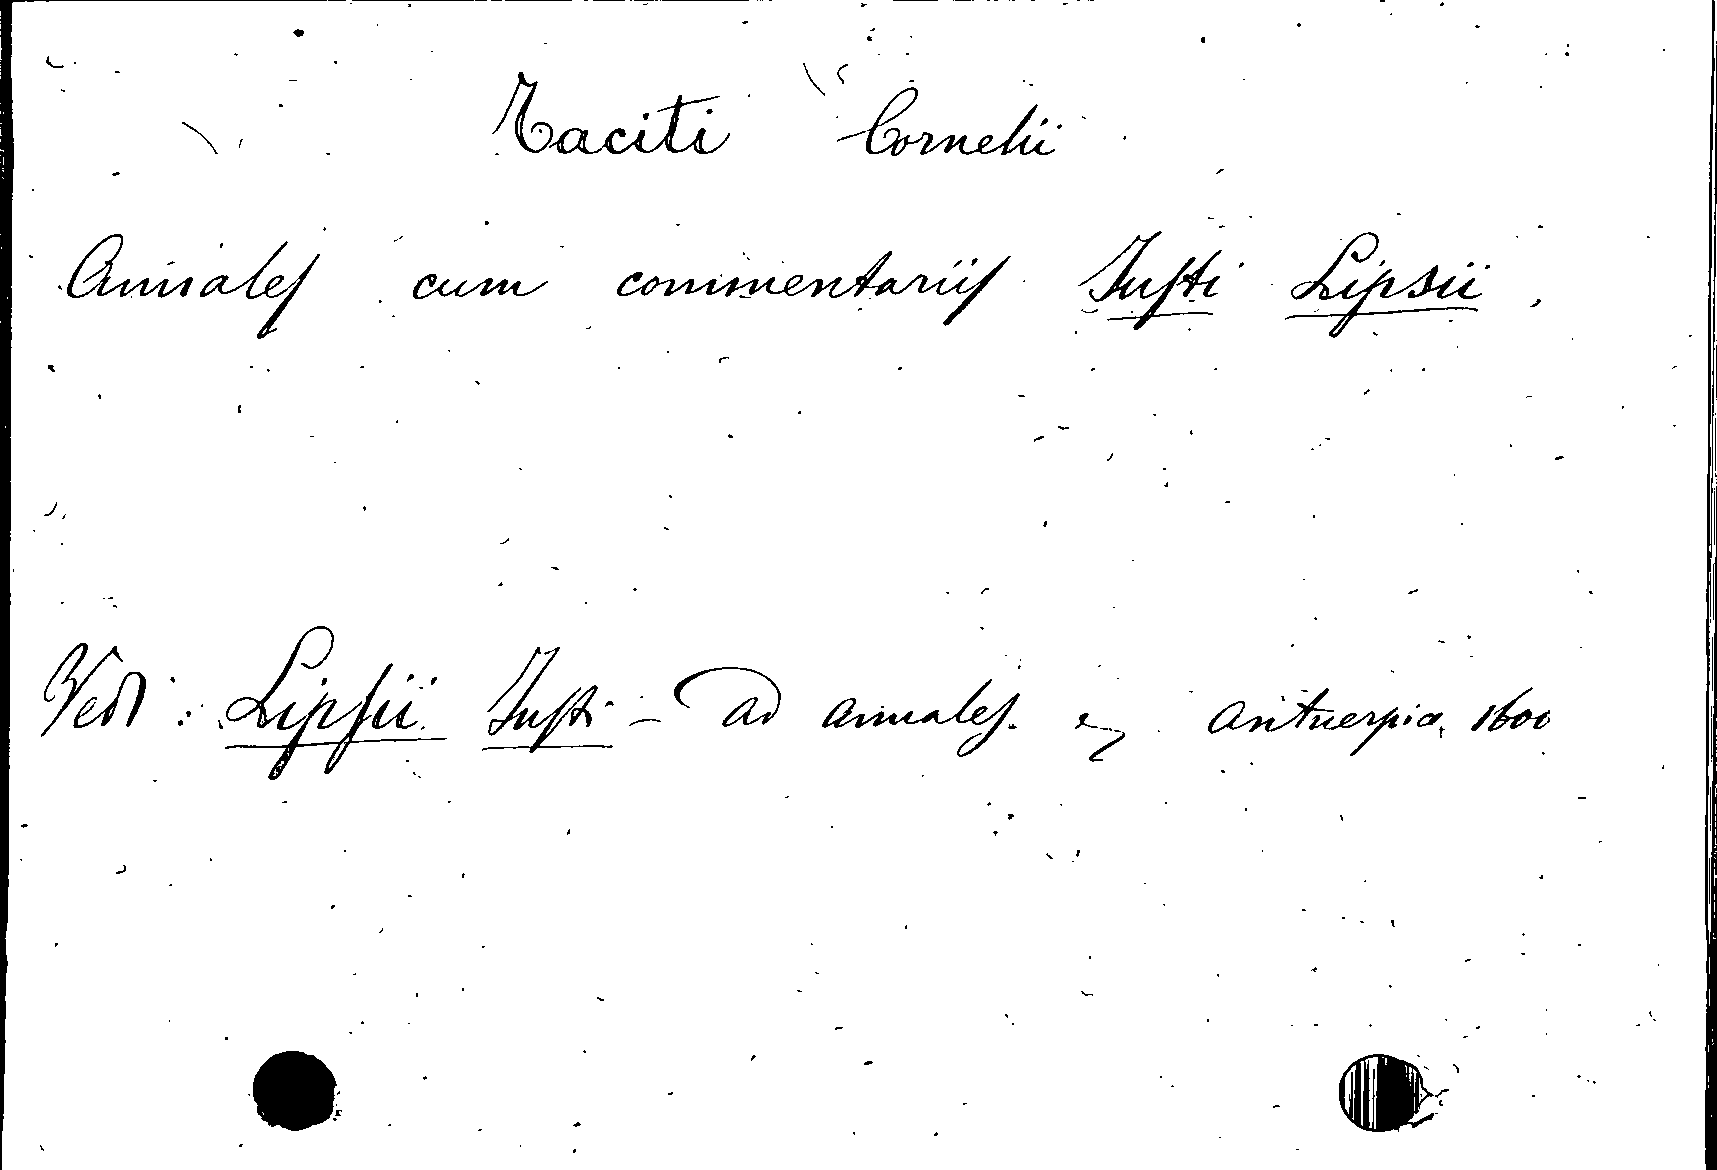 Taciti Cornelii
Annaleſ cum commentariiſ Juſti Lipsii,
Vedi: Lipſii Juſti – ad annaleſ. Antuerpia, 1600